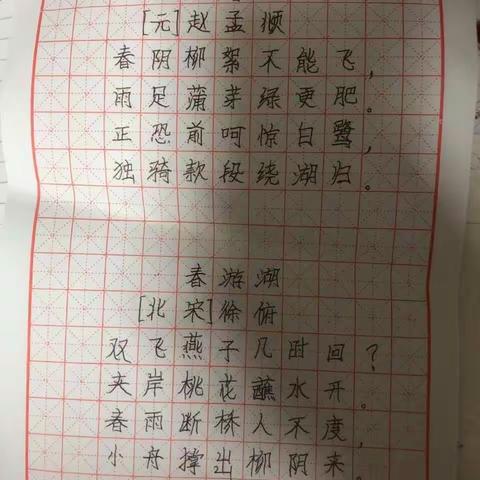 [元]赵孟頫
春阴柳絮不能飞，
雨足蒲芽绿更肥。
正恐前呵惊白鹭，
独骑款段绕湖归。
春游湖
[北宋]徐俯
双飞燕子几时回？
夹岸桃花蘸水开。
春雨断桥人不度，
小舟撑出柳阴来。